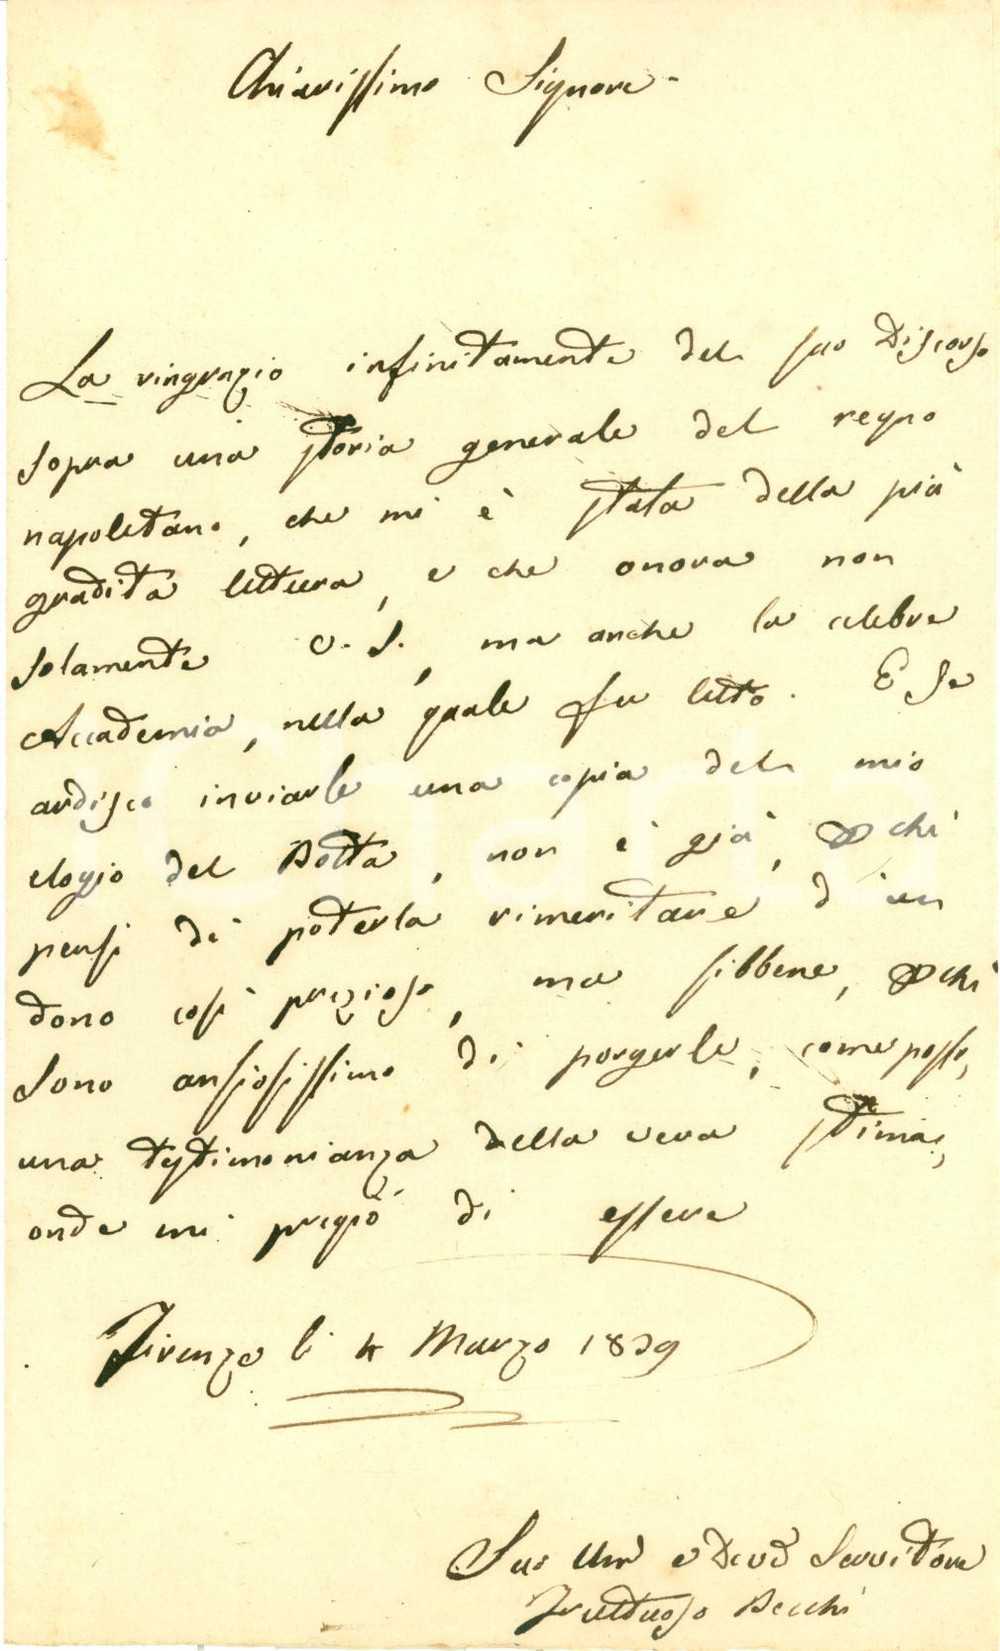 Chiarissimo Signore
La ringrazio infinitamente del suo Discorso
sopra una storia generale del regno
napoletano, che mi è stata della più
gradita lettura, e che onora non
solamente V. S., ma anche la celebre
Accademia, nella quale fu letto. E se
ardisco inviarle una copia del mio
elogio del Botta, non è già, chè
pensi di poterla rimeritare d'un
dono così prezioso, ma sibbene, chè
sono ansiosissimo di porgerle, come posso,
una testimonianza della vera stima,
onde mi pregio di essere
Firenze li 4 Marzo 1839
Suo Um̃o e Deṽo Servitore
Fruttuoso Becchi